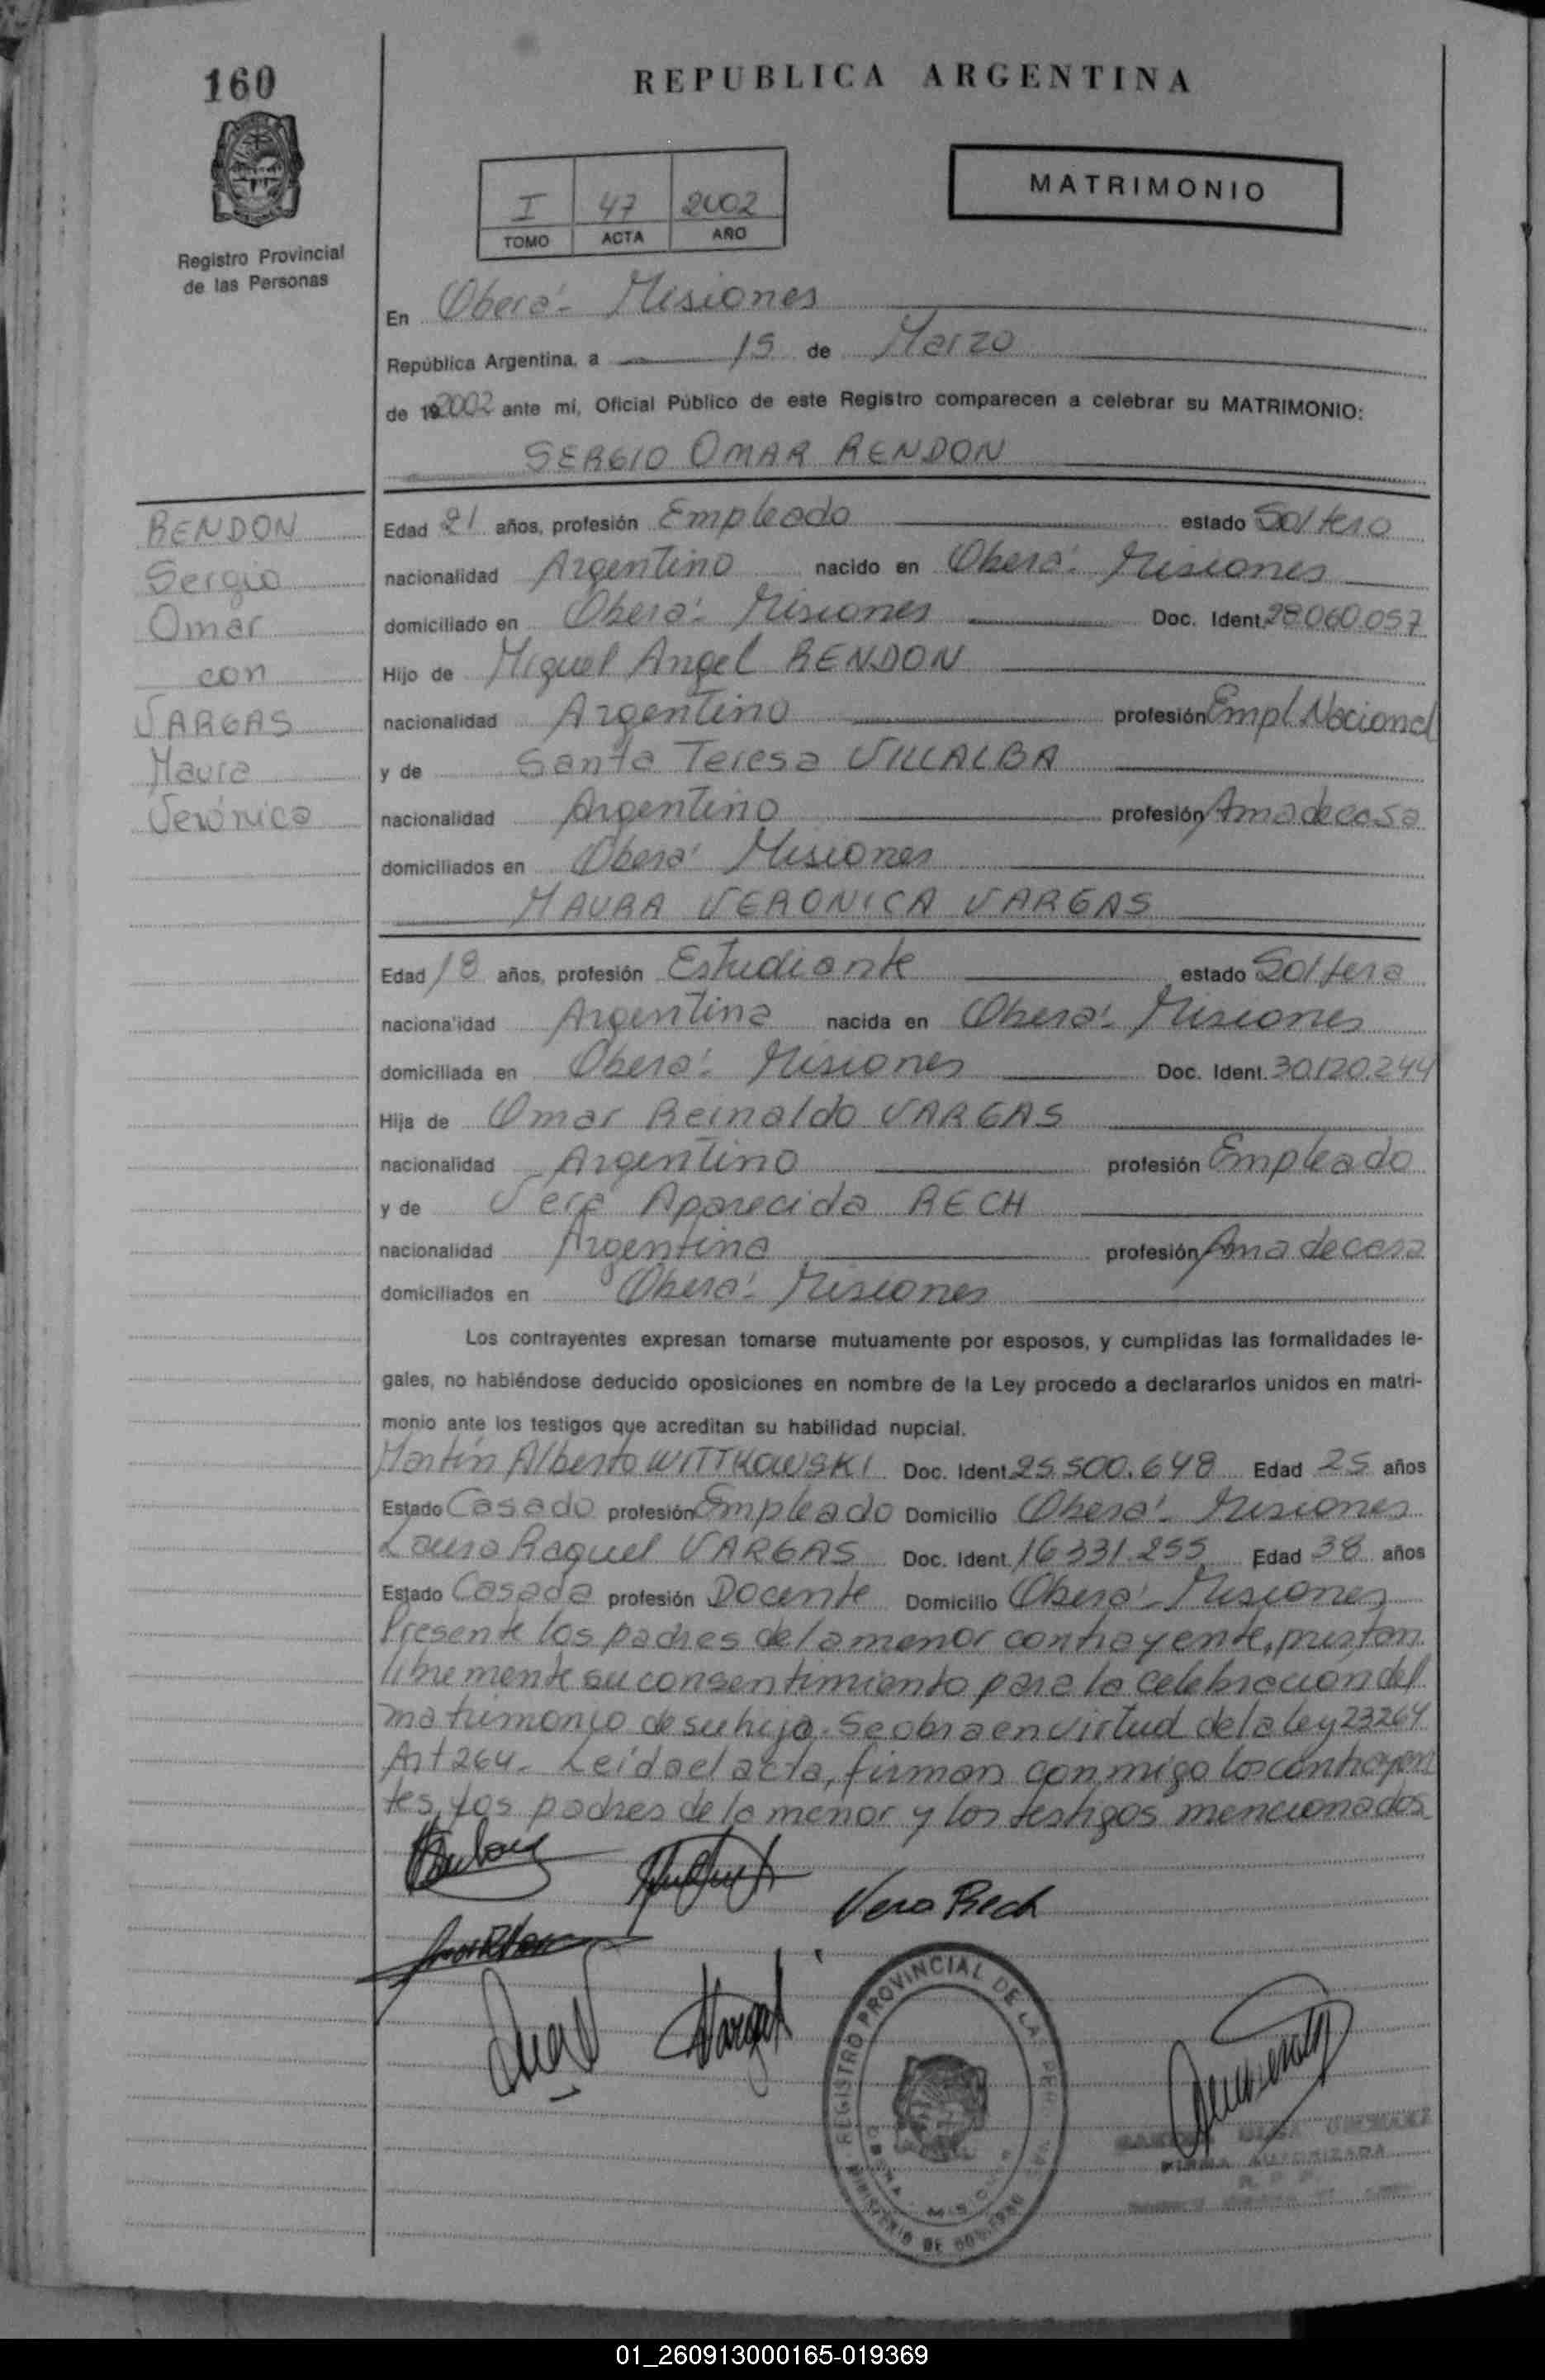 160
REPUBLICA ARGENTINA
I 47 2002
TOMO ACTA AÑO
MATRIMONIO
Registro Provincial
de las Personas
En Oberá - Misiones
República Argentina, a 15 de Marzo
de 19 2002 ante mí, Oficial Público de este Registro comparecen a celebrar su MATRIMONIO:
SERGIO OMAR RENDON
RENDON
Sergio
Omar
con
VARGAS
Maura
Verónica
Edad 21 años, profesión Empleado estado Soltero
nacionalidad Argentino nacido en Oberá - Misiones
domiciliado en Oberá - Misiones Doc. Ident. 28.060.057
Hijo de Miguel Angel RENDON
nacionalidad Argentino profesión Empl. Nacional
y de Santa Teresa VILLALBA
nacionalidad Argentino profesión Ama de casa
domiciliados en Oberá Misiones
MAURA VERONICA VARGAS
Edad 18 años, profesión Estudiante estado Soltera
naciona'idad Argentina nacida en Oberá - Misiones
domiciliada en Oberá - Misiones Doc. Ident. 30.120.244
Hija de Omar Reinaldo VARGAS
nacionalidad Argentino profesión Empleado
y de Vera Aparecida RECH
nacionalidad Argentina profesión Ama de casa
domiciliados en Oberá - Misiones
Los contrayentes expresan tomarse mutuamente por esposos, y cumplidas las formalidades le-
gales, no habiéndose deducido oposiciones en nombre de la Ley procedo a declararlos unidos en matri-
monio ante los testigos que acreditan su habilidad nupcial.
Martín Alberto WITTKOWSKI Doc. Ident. 25.500.648 Edad 25 años
Estado Casado profesión Empleado Domicilio Oberá - Misiones
Laura Raquel VARGAS Doc. Ident. 16331.255 Edad 38 años
Estado Casada profesión Docente Domicilio Oberá - Misiones
Presente los padres de la menor contrayente, prestan
libremente su consentimiento para la celebración del
matrimonio de su hija. Se obra en virtud de la ley 23264
Art 264. Leída el acta, firman conmigo los contrayen
tes, los padres de la menor y los testigos mencionados
Vera Rech
Vargas
REGISTRO PROVINCIAL DE LAS
MINISTERIO DE GOBIERNO
FIRMA AUTORIZADA
01_260913000165-019369